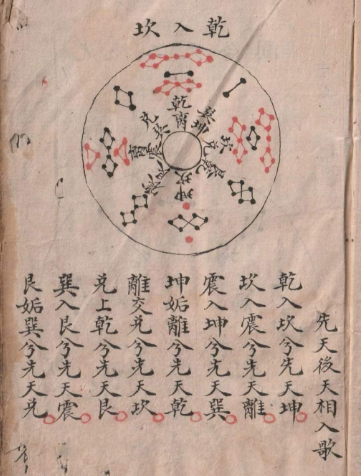 坎入乾
先天後天相入歌
乾入坎兮先天坤
坎入震兮先天離
震入坤兮先天巽
坤姤離兮先天乾
離交兌兮先天坎
兌上乾兮先天艮
巽入艮兮先天震
艮姤巽兮先天兌